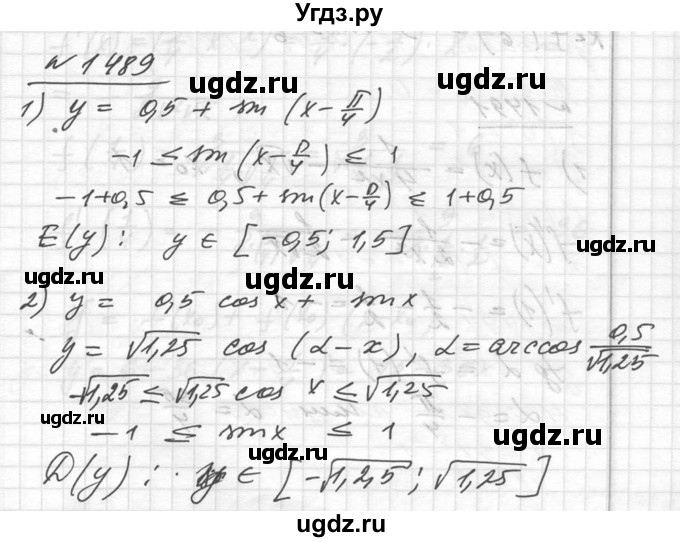 Угдз.ру
N 1489
ugdz.ru ugdz.ru
1) y = 0,5 + sin (x - π/4)
-1 ≤ sin (x - π/4) ≤ 1
-1+0,5 ≤ 0,5+sin(x-π/4) ≤ 1+0,5
E(y): y ∈ [-0,5; 1,5] ugdz.ru
ugdz.ru ugdz.ru
2) y = 0,5 cos x + sin x
y = √1,25 cos (α - x), α = arccos 0,5/√1,25
-√1,25 ≤ √1,25 cos x ≤ √1,25
ugdz.ru ugdz.ru
-1 ≤ sin x ≤ 1
ugdz.ru
D(y): y ∈ [-√1,25; √1,25]
ugdz.ru